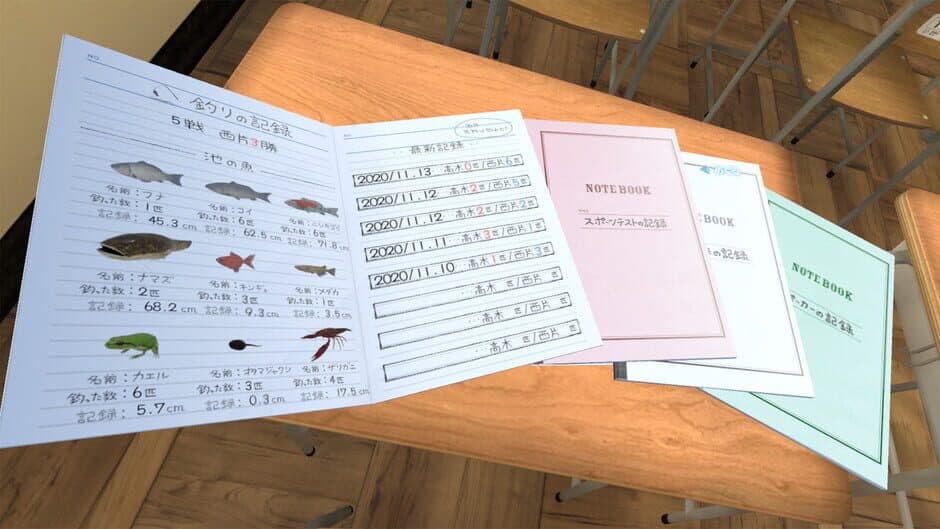 NO.
釣りの記録
5戦 西片3勝
池の魚
名前:フナ
釣った数:1匹
記録: 45.3 cm
名前:コイ
釣った数:6匹
記録: 62.5 cm
名前:ニシキゴイ
釣った数:6匹
記録: 71.8 cm
名前:ナマズ
釣った数:2匹
記録: 68.2 cm
名前:キンギョ
釣った数:3匹
記録: 9.3 cm
名前:メダカ
釣った数:1匹
記録: 3.5 cm
名前:カエル
釣った数:6匹
記録: 5.7 cm
名前:オタマジャクシ
釣った数:3匹
記録: 0.3 cm
名前:ザリガニ
釣った数:4匹
記録: 17.5 cm
NO.
最新記録
2020/11.13 高木0匹/西片6匹
2020/11.12 高木2匹/西片5匹
2020/11.12 高木2匹/西片2匹
2020/11.11 高木3匹/西片1匹
2020/11.10 高木1匹/西片3匹
高木 匹/西片 匹
高木 匹/西片 匹
高木 匹/西片 匹
NOTEBOOK
スポーツテストの記録
NOTEBOOK
の記録
NOTEBOOK
ーカーの記録